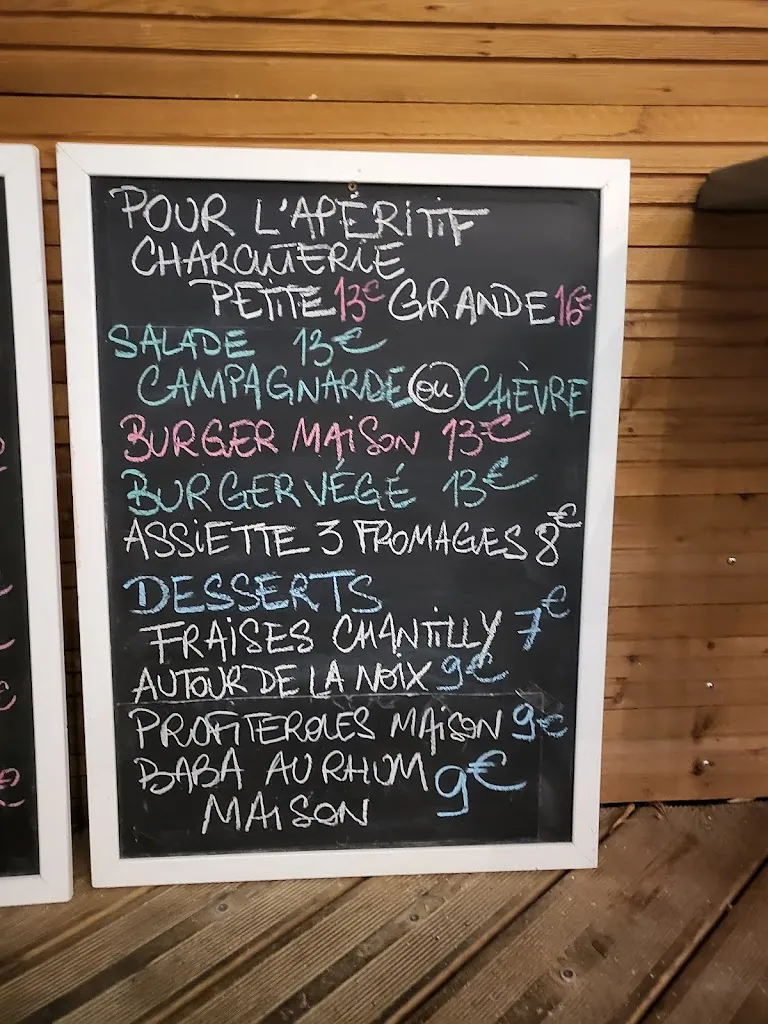 POUR L'APÉRITIF
CHARCUTERIE
PETITE 13€ GRANDE 16€
SALADE 13€
CAMPAGNARDE OU CHÈVRE
BURGER MAISON 13€
BURGER VÉGÉ 13€
ASSIETTE 3 FROMAGES 8€
DESSERTS
FRAISES CHANTILLY 7€
AUTOUR DE LA NOIX 9€
PROFITEROLES MAISON 9€
BABA AU RHUM 9€
MAISON